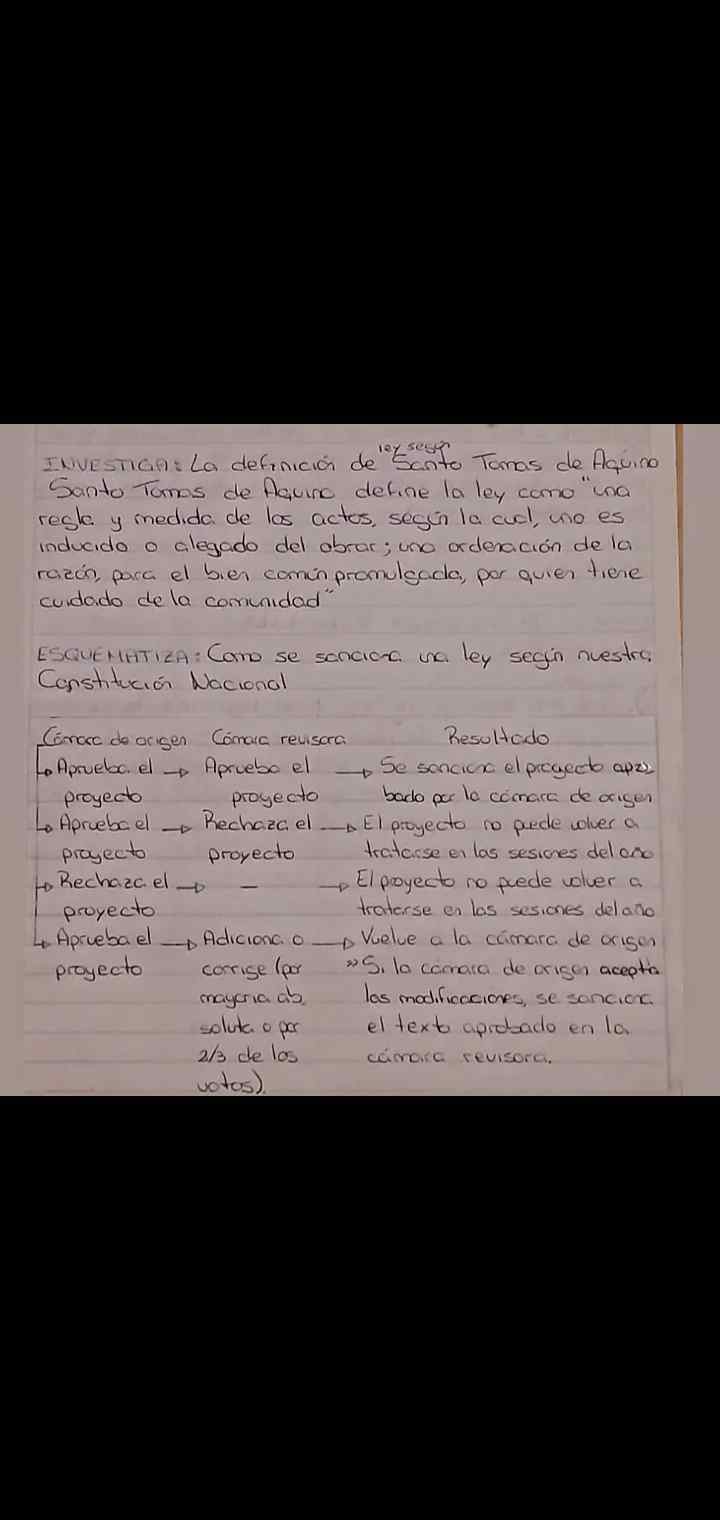 INVESTIGA: La definición de ley según Santo Tomas de Aquino
Santo Tomas de Aquino define la ley como "una
regla y medida de los actos, según la cual, uno es
inducido o alegado del obrar; una ordenación de la
razón, para el bien común promulgada, por quien tiene
cuidado de la comunidad"
ESQUEMATIZA: Como se sanciona una ley según nuestra
Constitución Nacional
Cámara de origen Cámara revisora Resultado
Aprueba el → Aprueba el → Se sanciona el proyecto apro
proyecto proyecto bado por la cámara de origen
Aprueba el → Rechaza el → El proyecto no puede volver a
proyecto proyecto tratarse en las sesiones del año
Rechaza el → - → El proyecto no puede volver a
proyecto tratarse en las sesiones del año
Aprueba el → Adiciona o → Vuelve a la cámara de origen
proyecto corrige (por » Si la cámara de origen acepta
mayoria ab, las modificaciones, se sanciona
soluta o por el texto aprobado en la
2/3 de los cámara revisora.
votos)